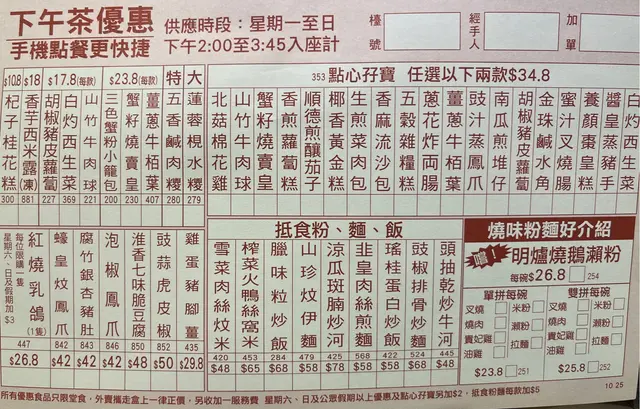 下午茶優惠
手機點餐更快捷
供應時段：星期一至日
下午2:00至3:45入座計
檯號
經手人
加單
$10.8
$18
$17.8(每款)
$23.8(每款)
特
大
杞子桂花糕
香芋西米露(凍)
胡椒豬皮蘿蔔
白灼西生菜
山竹牛肉球
三色蟹粉小籠包
蟹籽燒賣皇
薑蔥牛栢葉
五香鹹肉糉
蓮蓉梘水糉
300 881 227 369 221 200 230 407 280 279
353 點心孖寶 任選以下兩款$34.8
北菇棉花雞
山竹牛肉球
蟹籽燒賣皇
香煎蘿蔔糕
順德煎釀茄子
椰香黃金糕
生煎菜肉包
香麻流沙包
五穀雜糧糕
蔥花炸両腸
薑蔥牛栢葉
豉汁蒸鳳爪
南瓜煎堆仔
胡椒豬皮蘿蔔
金珠鹹水角
蜜汁叉燒腸
養顏棗皇糕
醬皇蒸豬手
白灼西生菜
杞子桂花糕
每位限購一隻
星期六、日及假期加$3
紅燒乳鴿(1隻)
蠔皇炆鳳爪
腐竹銀杏豬肚
泡椒鳳爪
淮香七味脆豆腐
豉蒜虎皮椒
雞蛋豬腳薑
447 842 843 846 850 852 435
$26.8 $42 $42 $42 $48 $50 $29.8
抵食粉、麵、飯
雪菜肉絲炆米
榨菜火鴨絲窩米
臘味粒炒飯
山珍炆伊麵
涼瓜斑腩炒河
韭皇肉絲煎麵
瑤柱蛋白炒飯
豉椒排骨炒麵
頭抽乾炒牛河
420 453 284 479 425 568 422 524 445
$48 $65 $68 $58 $78 $58 $68 $68 $48
燒味粉麵好介紹
明爐燒鵝瀨粉
每碗$26.8 254
單拼每碗
叉燒
燒肉
貴妃雞
油雞
米粉
瀨粉
拉麵
$23.8 251
雙拼每碗
叉燒
燒肉
貴妃雞
油雞
米粉
瀨粉
拉麵
$25.8 252
所有優惠食品只限堂食，外賣攜走盒上一律正價，另收加一服務費 星期六、日及公眾假期以上優惠及點心孖寶另加$2，抵食粉麵每款加$5
10.25